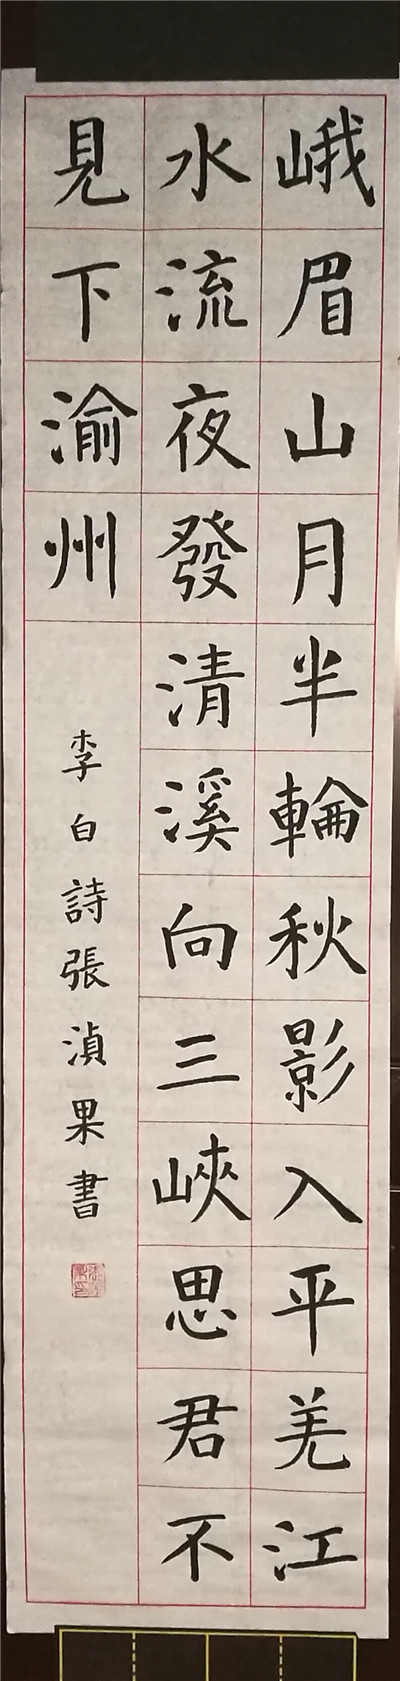 峨眉山月半輪秋影入平羌江
水流夜發清溪向三峽思君不
見下渝州
李白詩張滇果書